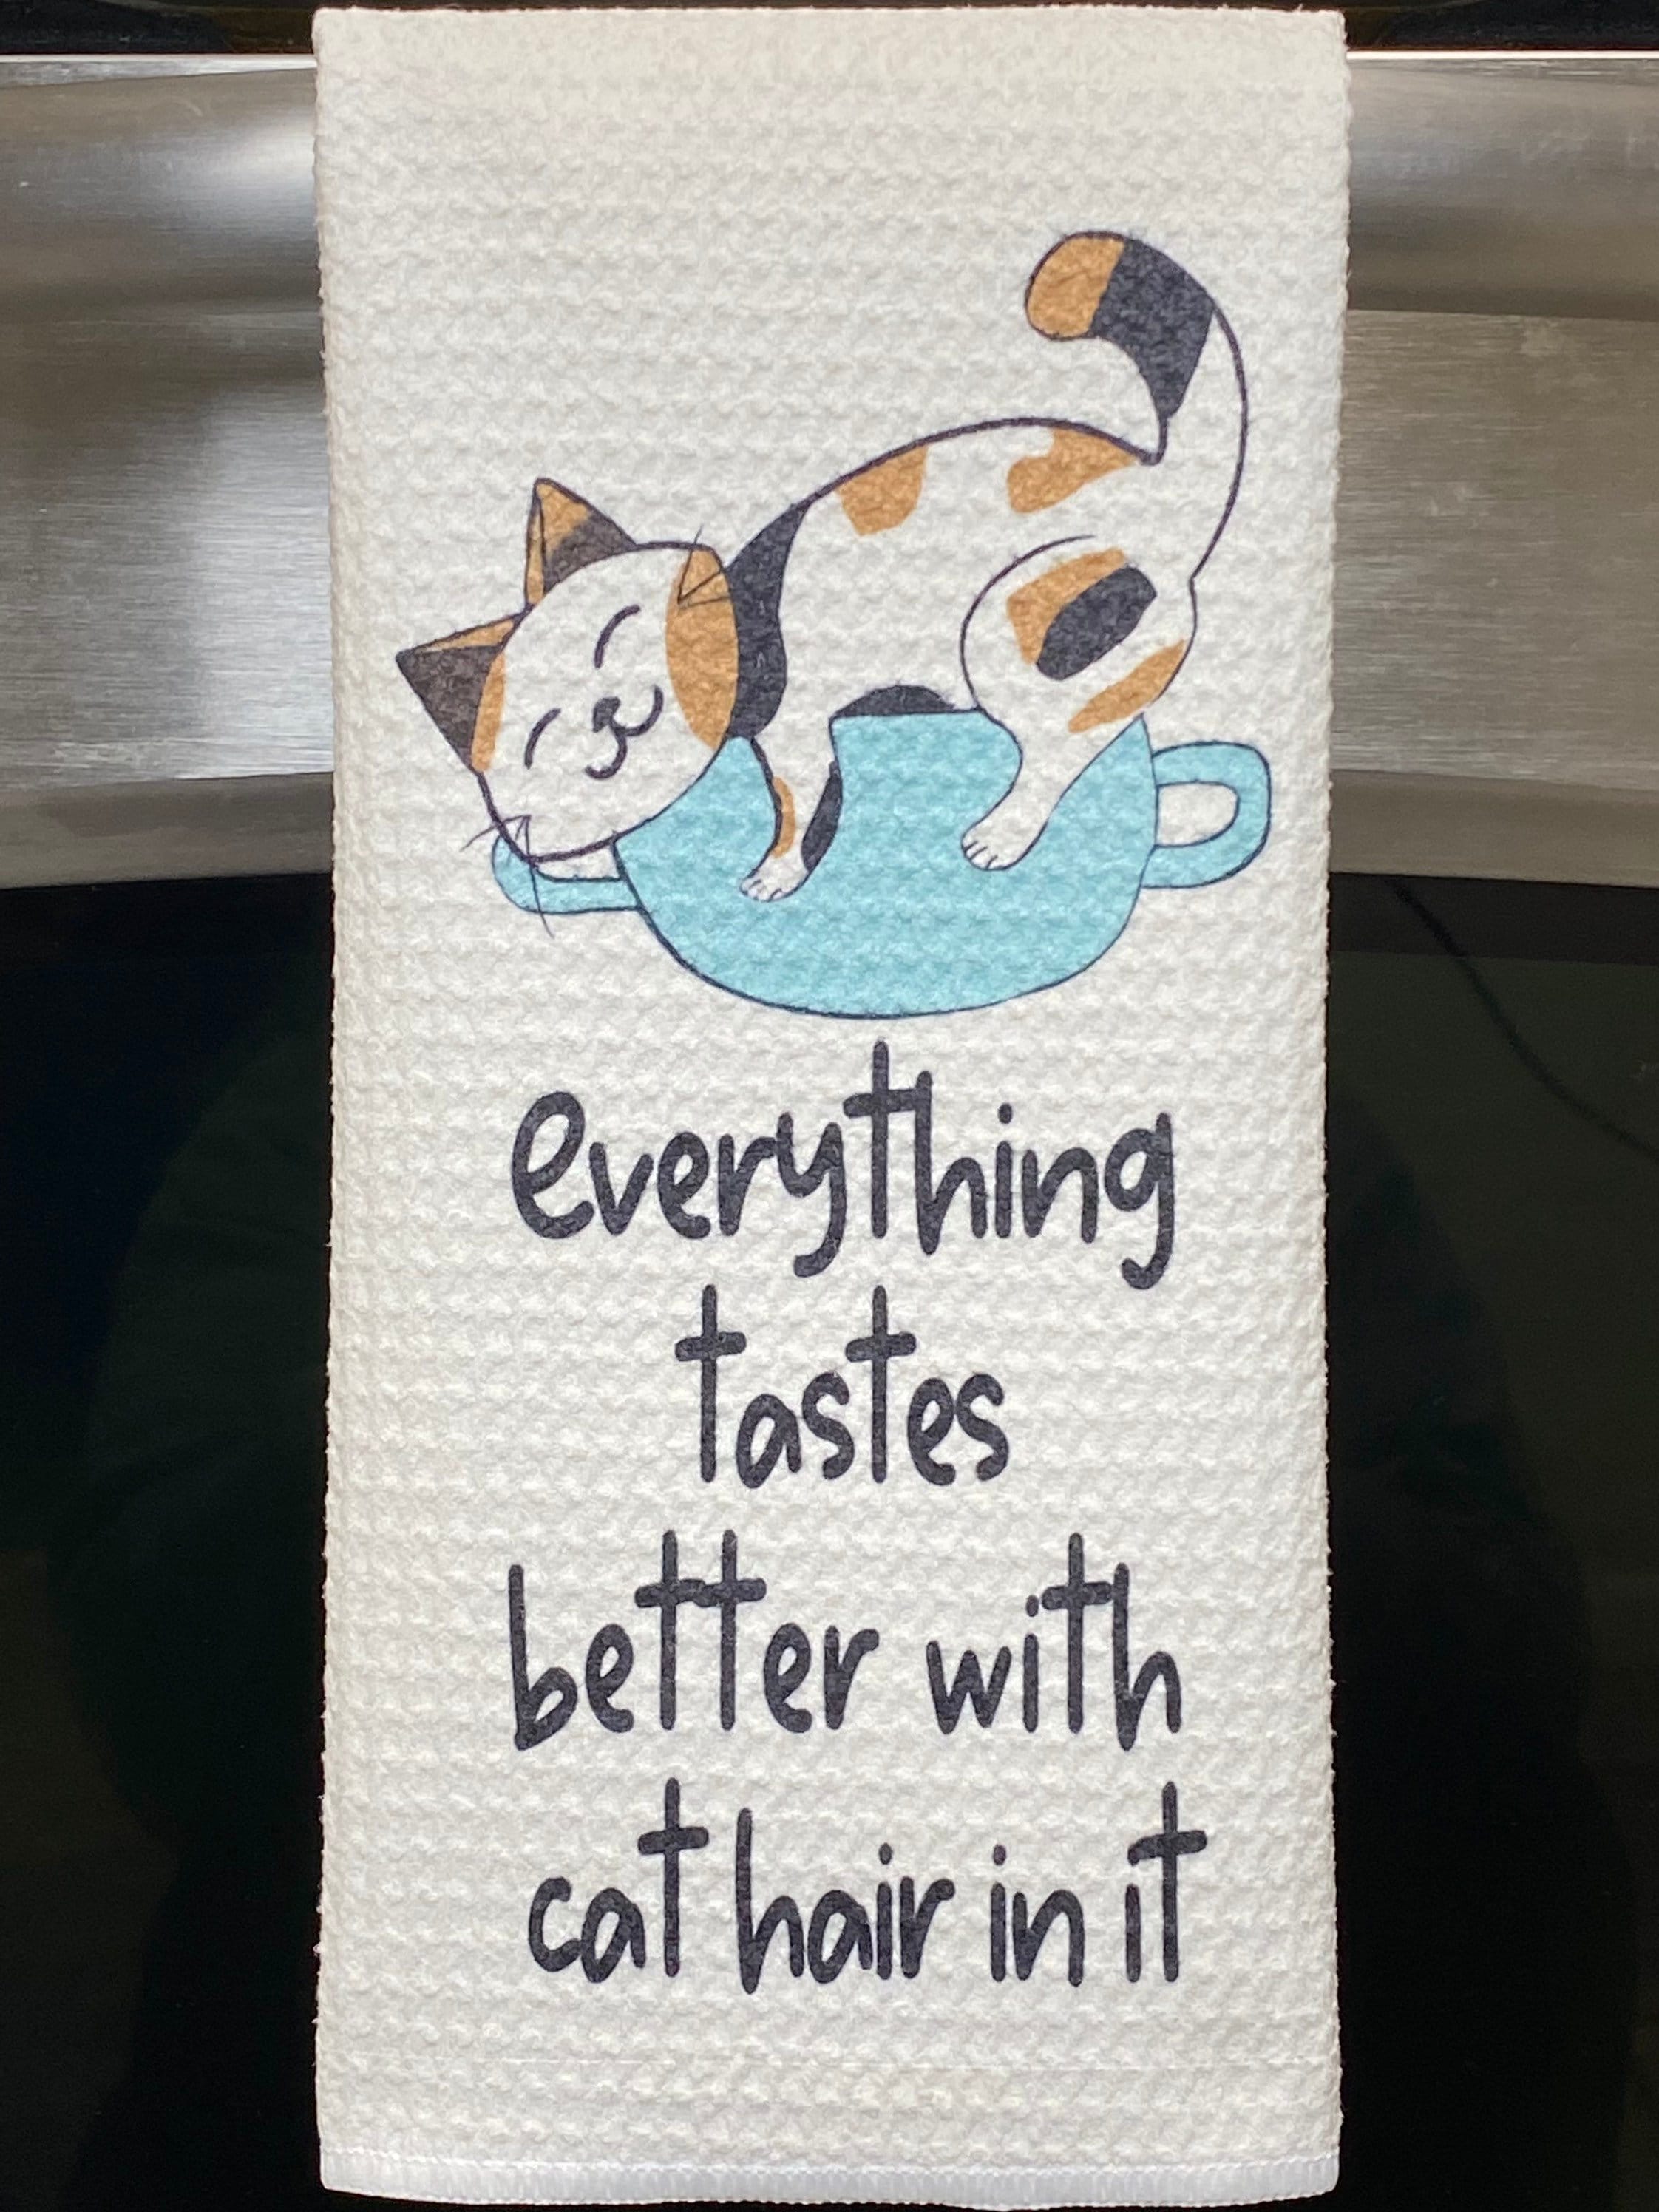 everything
tastes
better with
cat hair in it